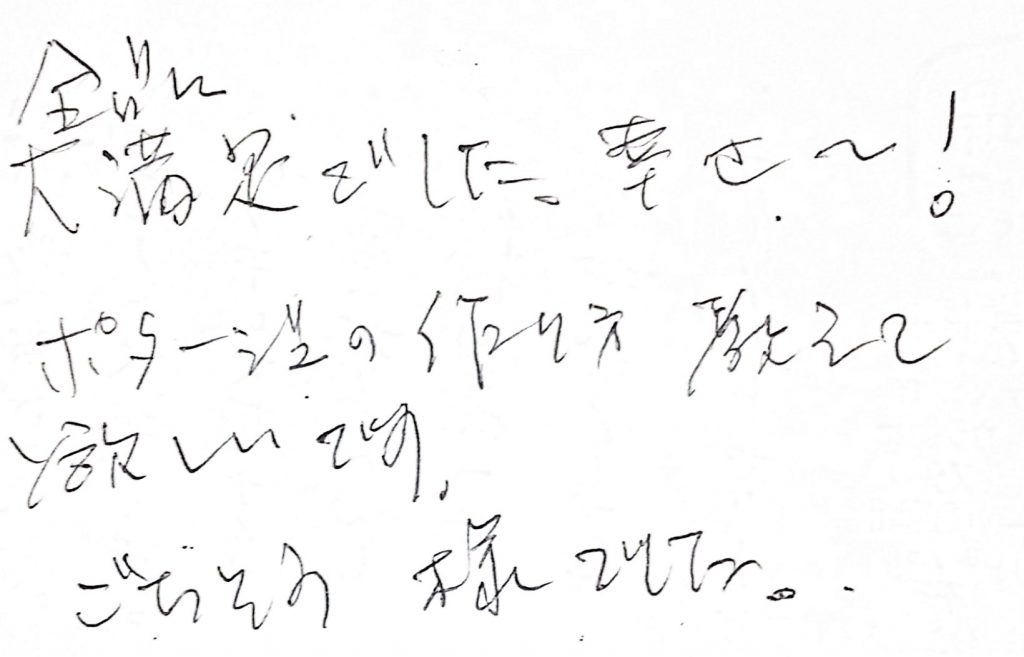 全部に
大満足でした。幸せ〜!
ポタージュの作り方 教えて
欲しいです。
ごちそう様でした。